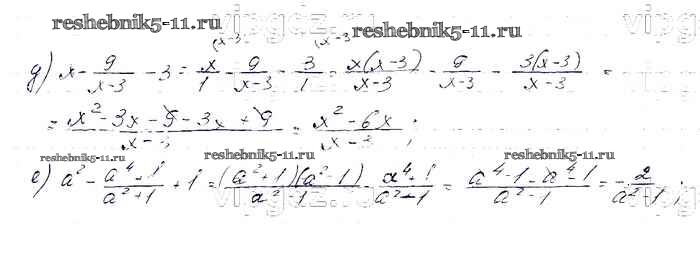 reshebnik5-11.ru
reshebnik5-11.ru
vipgdz.ru
(x-3 (x-3
д) x - 9/(x-3) - 3 = x/1 - 9/(x-3) - 3/1 = x(x-3)/(x-3) - 9/(x-3) - 3(x-3)/(x-3) =
= (x² - 3x - 9 - 3x + 9)/(x-3) = (x² - 6x)/(x-3);
reshebnik5-11.ru reshebnik5-11.ru reshebnik5-11.ru
е) a² - (a⁴+1)/(a²+1) + 1 = (a²+1)(a²-1)/(a²-1) - (a⁴+1)/(a²-1) = (a⁴-1-a⁴-1)/(a²-1) = -2/(a²-1);
vipgdz.ru